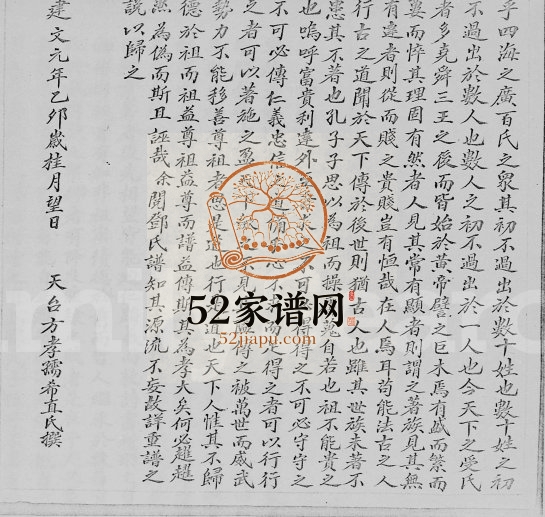 乎四海之廣百氏之衆其初不過出於數十姓也數十姓之初
不過出於數人也數人之初不過出於一人也今天下之受氏
者多堯舜三王之後而皆始於黃帝譬之巨木焉有盛而繁而
蔞而悴其理固有然者人見其常有顯者則謂之著族見其無
有達者則從而賤之貴賤豈有恒哉在人焉耳苟能法古之人
行古之道聞於天下傳於後世則猶古人也雖其世族未著不
患其不著也孔子子思以為祖而操 自若也祖不能貴之
也嗚呼富貴利達外 不可 得得之不可必守守之
不可必傳仁義忠信 道備 心不 而 得之者可以行行
之者可以著施之盈 見 傳之被萬世而威武
勢力不能移善尊祖者思是道也行是道也天下人惟其不歸
德於祖而祖益尊祖益尊而譜益傳斯其為孝大矣何必趦趄
然為偽而斯且誣哉余閱鄧氏譜知其源流不妄故詳重譜之
說以歸之
建文元年乙卯歲桂月望日 天台方孝孺希直氏撰
52家谱网
52jiapu.com